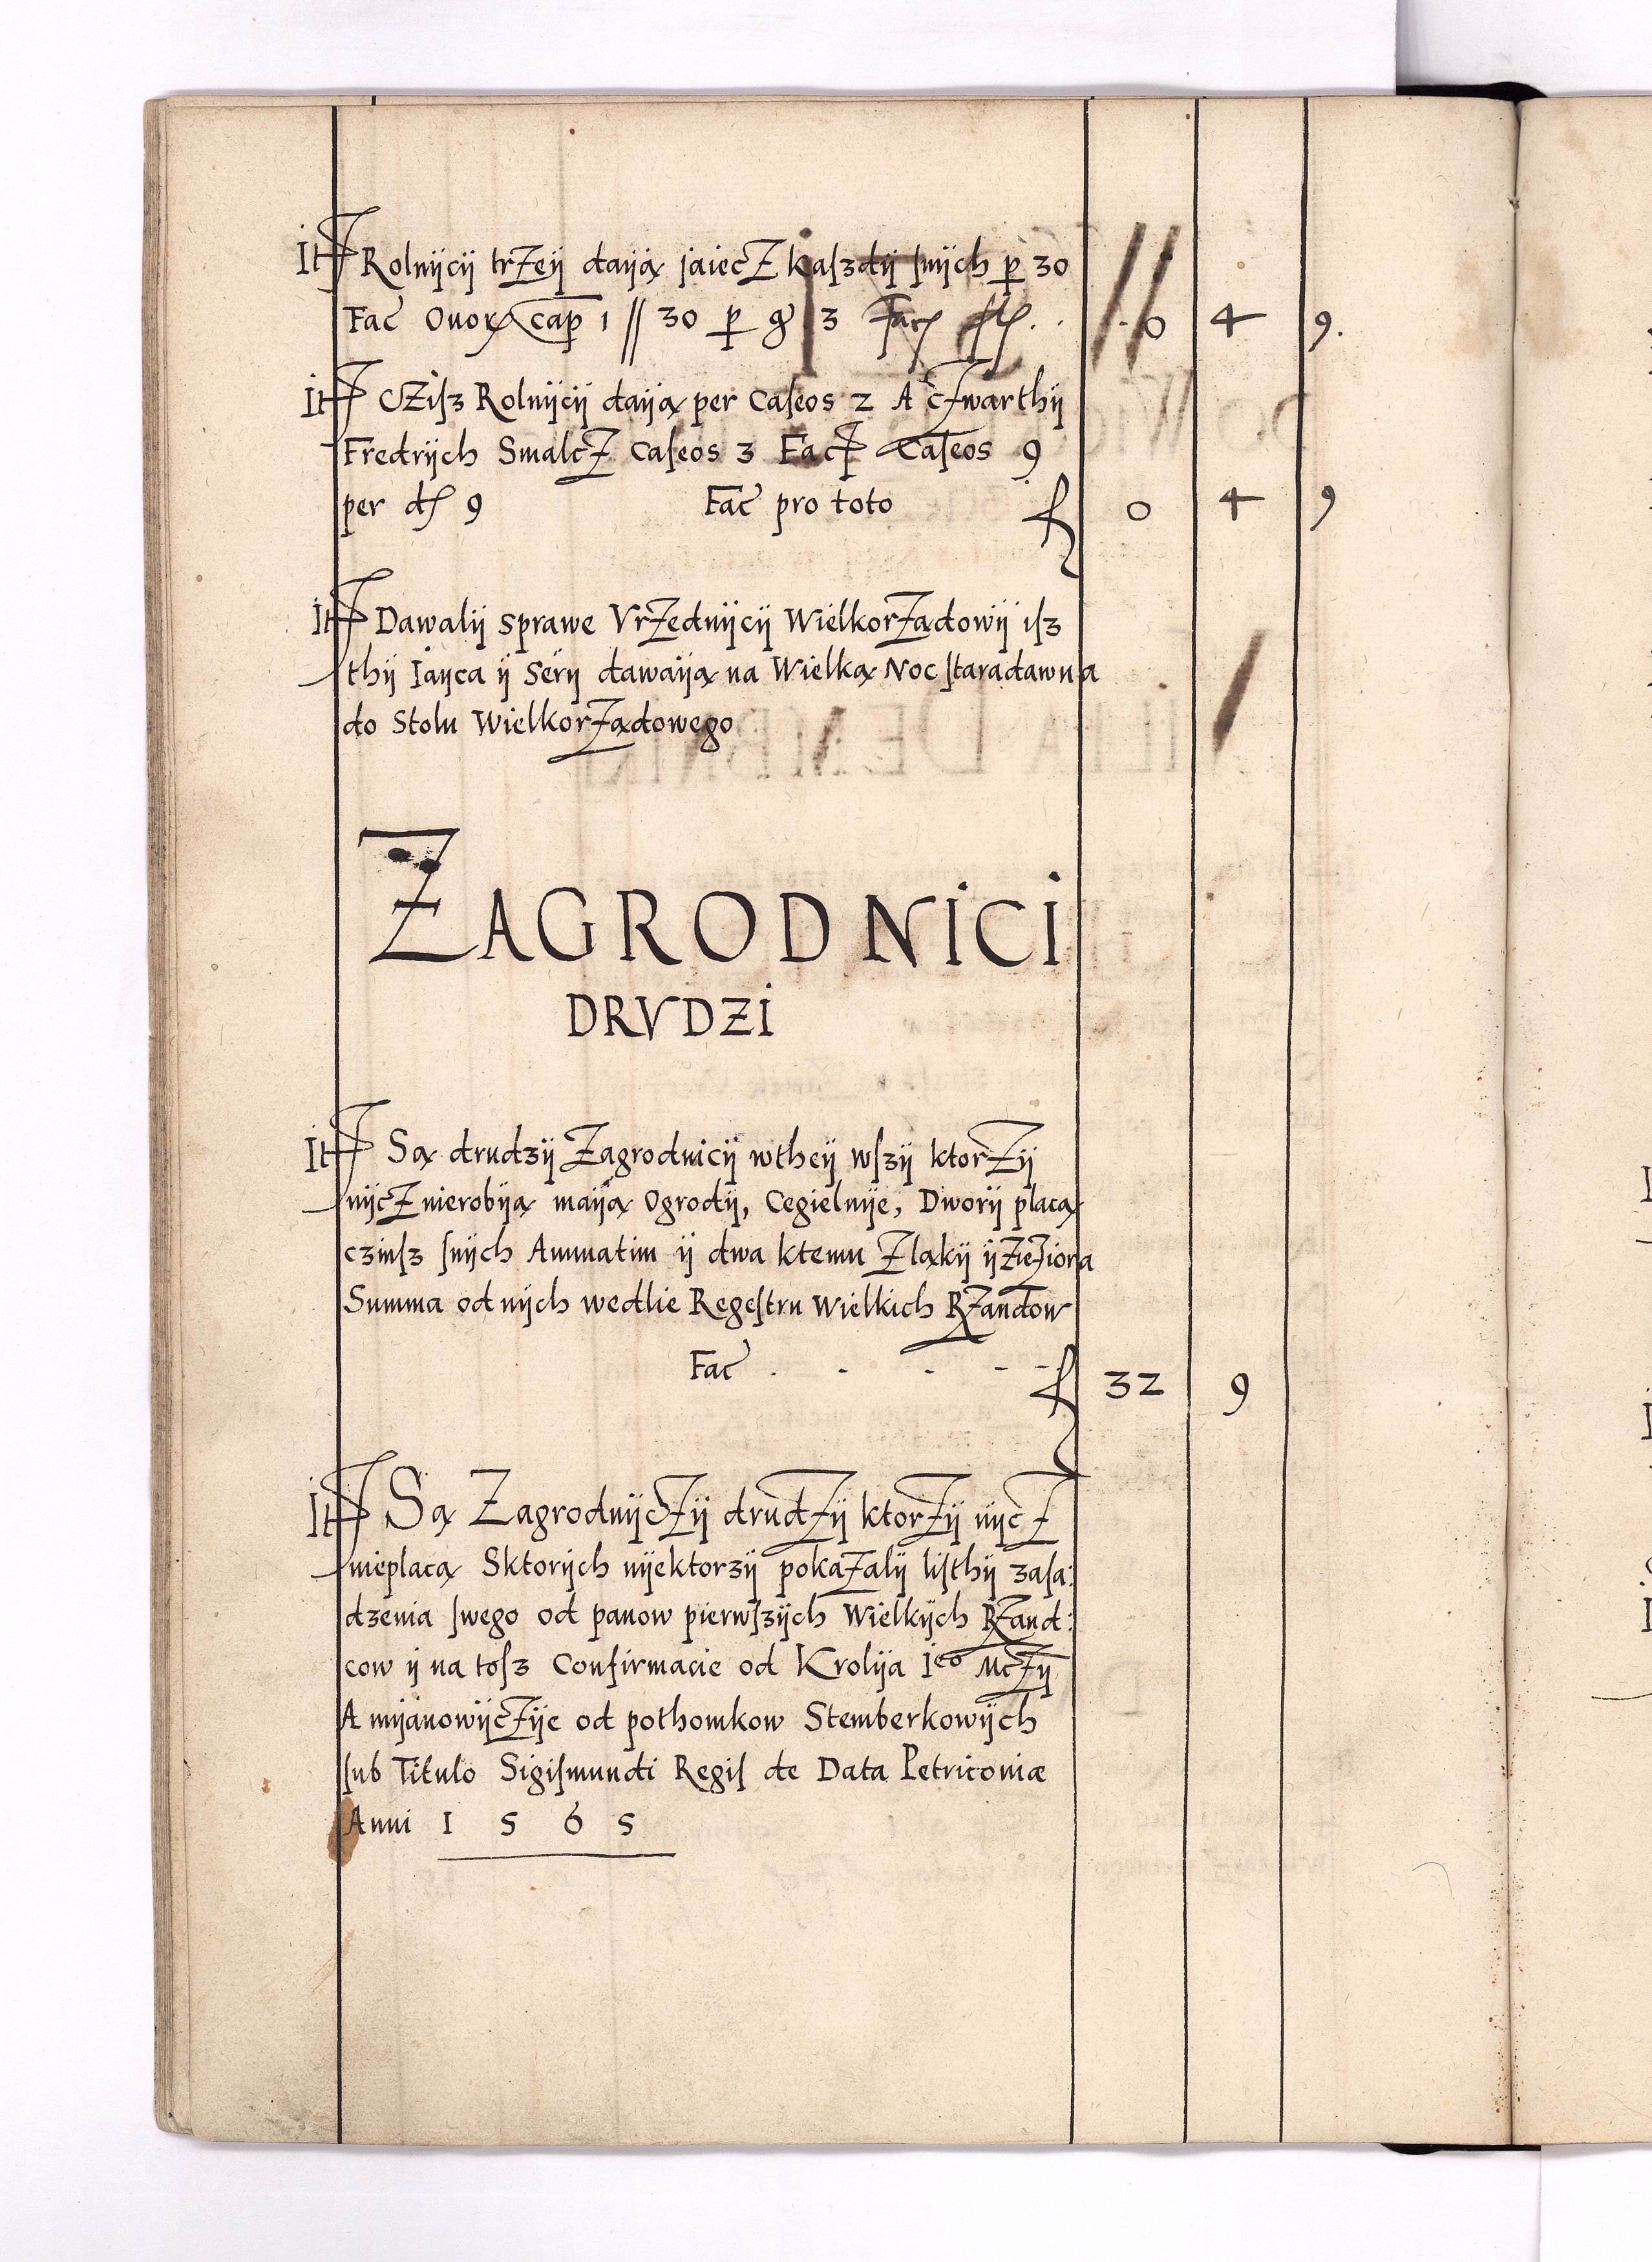 It Rolnijcij trzeij daija jaiecz kaſzdij ſnijch p 30
Fac Ouor cap 1 // 30 p g 3 Fac fl . . 0 4 9.
It Cziſz Rolnijcij daija per Caſeos 2 A czwarthij
Fredrijch Smalcz Caſeos 3 Fact Caſeos 9
per d 9 Fac pro toto f 0 4 9
It Dawalij sprawe Vrzednijcij Wielkorządowij iſz
thij Iaijca ij Serij dawaija na Wielką Noc ſtaradawna
do Stolu Wielkorządowego
ZAGRODNICI
DRVDZI
It Są drudzij Zagrodnicij wtheij wſzij ktorzij
nijcz nierobiją maiją Ogrodij, Cegielnije, Dworij placą
czinſz ſnijch Annuatim ij dwa ktemu Zląkij ij Zieziora
Summa od nijch wedlie Regeſtru Wielkich Rzandow
Fac . - - - - f 32 9
It Są Zagrodnijczij drudzij ktorzij nijcz
nieplacą Sktorijch nijektorzij pokazalij liſthij zaſa:
dzenia ſwego od panow pierwſzijch Wielkijch Rzand:
cow ij na toſz Confirmacie od Krolija Ieo Mczij
A mijanowijczije od pothomkow Stemberkowijch
ſub Titulo Sigiſmundi Regiſ de Data Petriconiæ
Anni 1 5 6 5